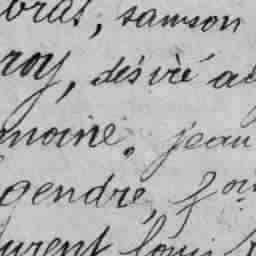 bras, samson
roy, désiré
moine, jean
gendre,
urent louis